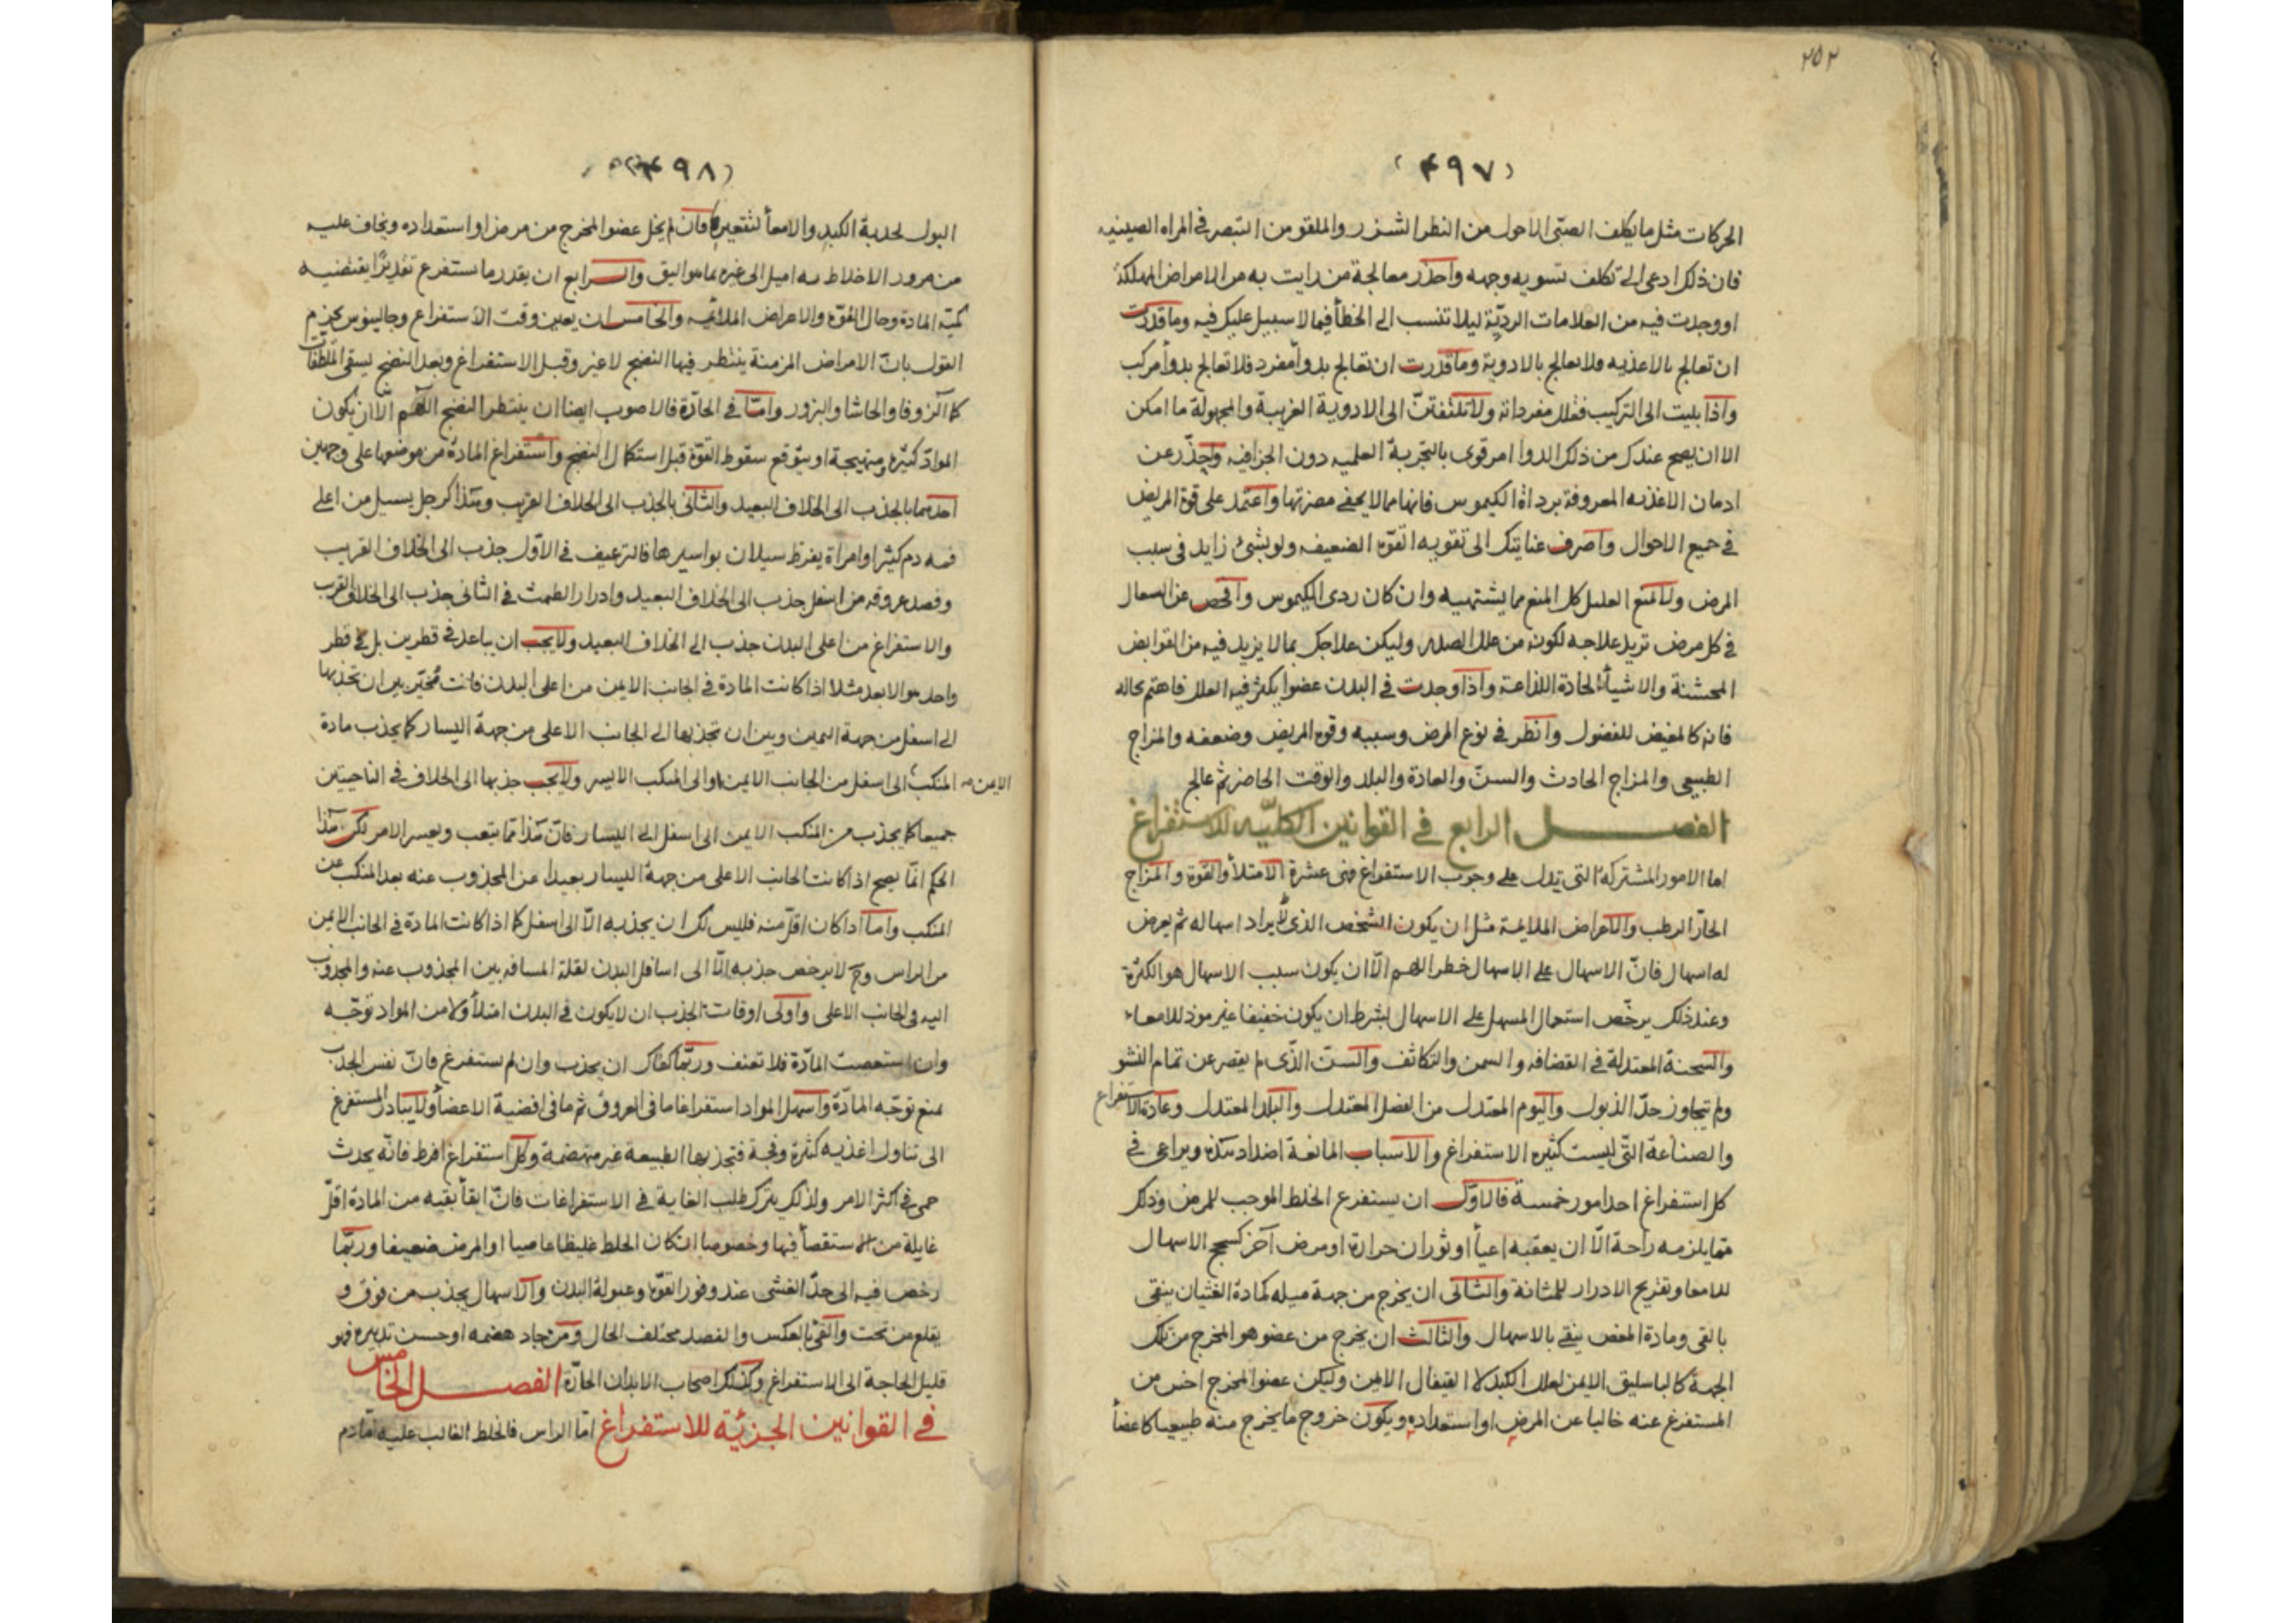 ٢٥٢
(٤٩٧)
الحركات مثل ما يكلف الصبى الاحول من النظر الشزر والملقو من التبصر فى المراه الصينيه
فان ذلك ادعى الى تكلف تسويه وجهه واحذر معالجة من رايت به من الامراض المهلكة
او وجدت فيه من العلامات الرديّة ليلا تنسب الى الخطأ فيما لا سبيل عليك فيه وما قدرت
ان تعالج بالاغذيه ولا تعالج بالادوية وما قدرت ان تعالج بدوأ مفرد فلا تعالج بدوأ مركب
واذا بليت الى التركيب فقلل مفرداته ولا تلتفتنّ الى الادوية الغريبة والمجهولة ما امكن
الا ان يصح عندك من ذلك الدوا امر قوى بالتجربة العلميه دون الجزافيه واحذّر عن
ادمان الاغذيه المعروفة برداة الكيموس فانها مما لا يخفى مضرتها واعتمد على قوة المريض
فى جميع الاحوال واصرف عنايتك الى تقويه القوّه الضعيفه ولو بشئ زايد فى سبب
المرض ولا تمنع العليل كل المنع مما يشتهيه وان كان ردى الكيموس وافحص عن السعال
فى كل مرض تريد علاجه لكونه من علل الصدر وليكن علاجك بما لا يزيد فيه من القوابض
المخشنة والاشيأ الحادة اللذاعة واذا وجدت فى البدن عضوا يكثر فيه العلل فاهتم بحاله
فانه كالمغيض للفضول وانظر فى نوع المرض وسببه وقوة المريض وضعفه والمزاج
الطبيعى والمزاج الحادث والسنّ والعادة والبلد والوقت الحاضر ثم عالج
الفصل الرابع فى القوانين الكليّه للاستفراغ
اما الامور المشتركة التى تدل على وجوب الاستفراغ فهى عشرة الامتلأ والقوة والمزاج
الحارّ الرطب والاعراض الملايمة مثل ان يكون الشخص الذى يراد اسهاله ثم يعرض
له اسهال فانّ الاسهال على الاسهال خطر اللهم الّا ان يكون سبب الاسهال هو الكثرة
وعند ذلك يرخّص استعمال المسهل على الاسهال بشرط ان يكون خفيفا غير موذ للامعاء
والسحنة المعتدلة فى القضافه والسمن والتكاثف والسنّ الذّى لم يقصر عن تمام النشو
ولم يتجاوز حدّ الذبول واليوم المعتدل من الفصل المعتدل والبلد المعتدل وعادة الاستفراغ
والصناعة التّى ليست كثيره الاستفراغ والاسباب المانعة اضداد هذه ويراعى فى
كل استفراغ احد امور خمسة فالاوّل ان يستفرع الخلط الموجب للمرض وذلك
ممّا يلزمه راحة الّا ان يعقبه اعيأ او ثوران حرارة او مرض آخر كسحج الاسهال
للامعا وتقريح الادرار للمثانة والثانى ان يخرج من جهة ميله كمادة الغثيان ينقى
بالقى ومادة المغص ينقى بالاسهال والثالث ان يخرج من عضو هو المخرج من تلك
الجهة كالباسليق الايمن لعلل الكبد لا القيفال الايمن وليكن عضو المخرج اخس من
المستفرغ عنه خاليا عن المرض او استعداده ويكون خروج ما يخرج منه طبيعيا كاعضأ
(٤٩٨)
البول لحدبة الكبد والامعأ لتقعيره فان لم يخل عضو المخرج من مرض او استعداده ويخاف عليه
من مرور الاخلاط به اميل الى غيره مما هو اليق والرابع ان يقدر ما يستفرع تقديرًا يقتضيه
كميّة المادة وحال القوّة والاعراض الملائمه والخامس ان يعين وقت الاستفراع وجالينوس يجزم
القول بانّ الامراض المزمنة ينتظر فيها النضج لا غير وقبل الاستفراغ وبعد النضج يسقى الملطّفات
كالزوفا والحاشا والبزور وامّا فى الحادّة فالاصوب ايضا ان ينتظر النضج اللّهم الّا ان يكون
الموادّ كثيرة ومتهيجة او يتوقع سقوط القوّة قبل استكمال النضج واستفراغ المادّة من موضعها على وجهين
احدهما بالجذب الى الخلاف البعيد والثانى بالجذب الى الخلاف القريب وهذا كرجل يسيل من اعلى
فمه دم كثير او امراة يفرط سيلان بواسيرها فالترعيف فى الاوّل جذب الى الخلاف القريب
وفصد عروقه من اسفل جذب الى الخلاف البعيد وادرار الطمث فى الثانى جذب الى الخلاف القرب
والاستفراغ من اعلى البدن جذب الى الخلاف البعيد ولا يجب ان يباعد فى قطرين بل فى قطر
واحد هو الابعد مثلا اذا كانت المادة فى الجانب الايمن من اعلى البدن فانت مُخيّر بين ان تجذبها
الى اسفل من جهة اليمين وبين ان تجذبها الى الجانب الاعلى من جهة اليسار كما يجذب مادة
المنكب الى اسفل من الجانب الايمن او الى المنكب الايسر ولا يجب جذبها الى الخلاف فى الناحيتين
الايمن
جميعا كما يجذب من المنكب الايمن الى اسفل الى اليسار فانّ هذا ممّا يتعب ويعسر الامر لكن هذا
الحكم انّما يصح اذا كانت الجانب الاعلى من جهة اليسار بعيدا عن المجذوب عنه بعد المنكب عن
المنكب وامّا اذا كان اقلّ منه فليس لك ان يجذبه الّا الى اسفل كما اذا كانت المادة فى الجانب الايمن
من الراس وح لا يرخص جذبه الّا الى اسافل البدن لقلة المسافه بين المجذوب عنه والمجذوب
اليه فى الجانب الاعلى واولى اوقات الجذب ان لا يكون فى البدن امتلأ ولا من المواد توّجه
وان استعصت المادّة فلا تعنف وربّما كفاك ان يجذب وان لم يستفرغ فانّ نفس الجذب
يمنع توجّه المادّة واسهل المواد استفراغا ما فى العروق ثم ما فى افضية الاعضأ ولا يبادر المستفرغ
الى تناول اغذيه كثرة وفجة فتجذبها الطبيعة غير منهضمة وكل استفراغ افرط فانّه يحدث
حمى فى اكثر الامر ولذلك يترك طلب الغاية فى الاستفراغات فانّ ابقأ بقيه من المادة اقلّ
غايلة من الاستقصأ فيها وخصوصا ان كان الخلط غليظا عاصيا او المرض ضعيفا وربّما
رخص فيه الى حدّ الغشى عند وفور القوّة وعبولة البدن والاسهال يجذب من فوق و
يقلع من تحت والقئ بالعكس والفصد مختلف الحال ومن جاد هضمه او حسن تدبيره فهو
قليل الحاجة الى الاستفراغ وكذلك اصحاب الابدان الحارّة الفصل الخامس
فى القوانين الجزئيّة للاستفراغ امّا الراس فالخلط الغالب عليه امّا دم